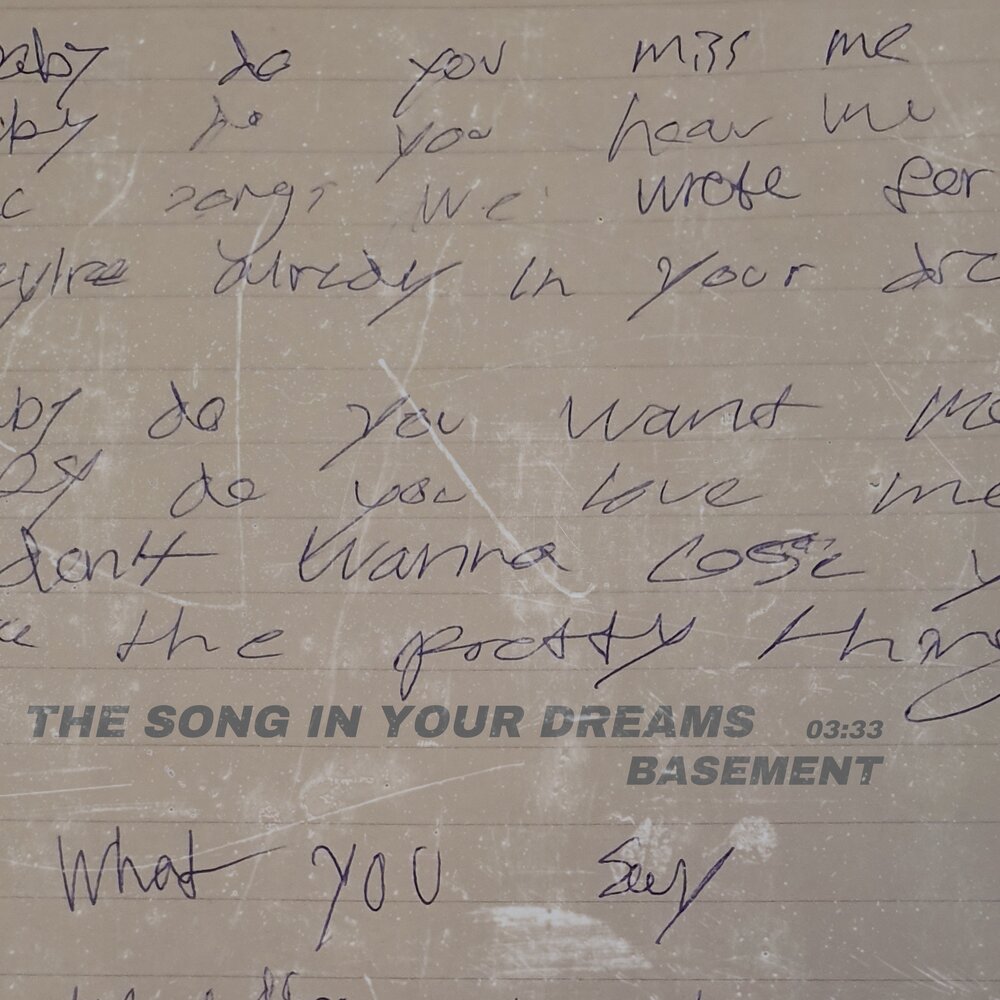 aby do you miss me
by do you hear me
songs we wrote for
already in your dre
by do you want me
by do you love me
don't wanna lose y
the pretty thing
THE SONG IN YOUR DREAMS 03:33
BASEMENT
What you say